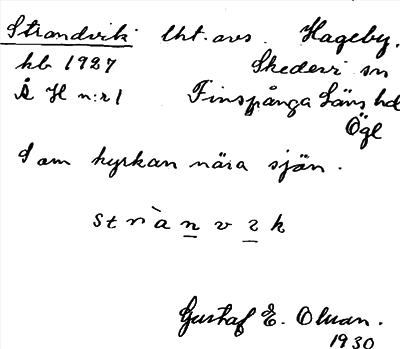 Strandvik lht. avs. Hageby.
kb 1927 Skedevi sn
Å H n:r 1 Finspånga Läns hd
Ögl
I om kyrkan nära sjön.
strànvɩk
Gustaf E. Olsson.
1930